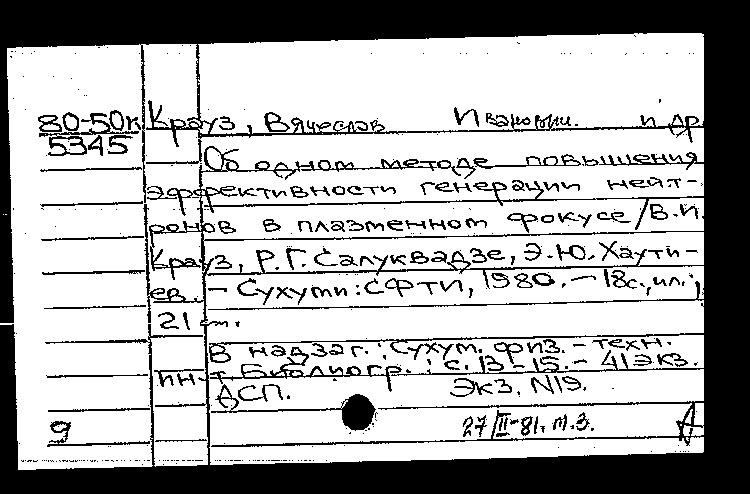 80-50к Крауз, Вячеслав Иванович. и др
5345
Об одном методе повышения
эффективности генерации нейт-
ронов в плазменном фокусе/В.И.
Крауз, Р.Г. Салуквадзе, Э.Ю. Хаути-
ев. - Сухуми: СФТИ, 1980. - 18с., ил.;
21 см.
В надзаг.: Сухум. физ.-техн.
ин-т Библиогр.: с. 13-15. - 41 экз.
ДСП. Экз. N19.
9 27/II-81. т.з. А